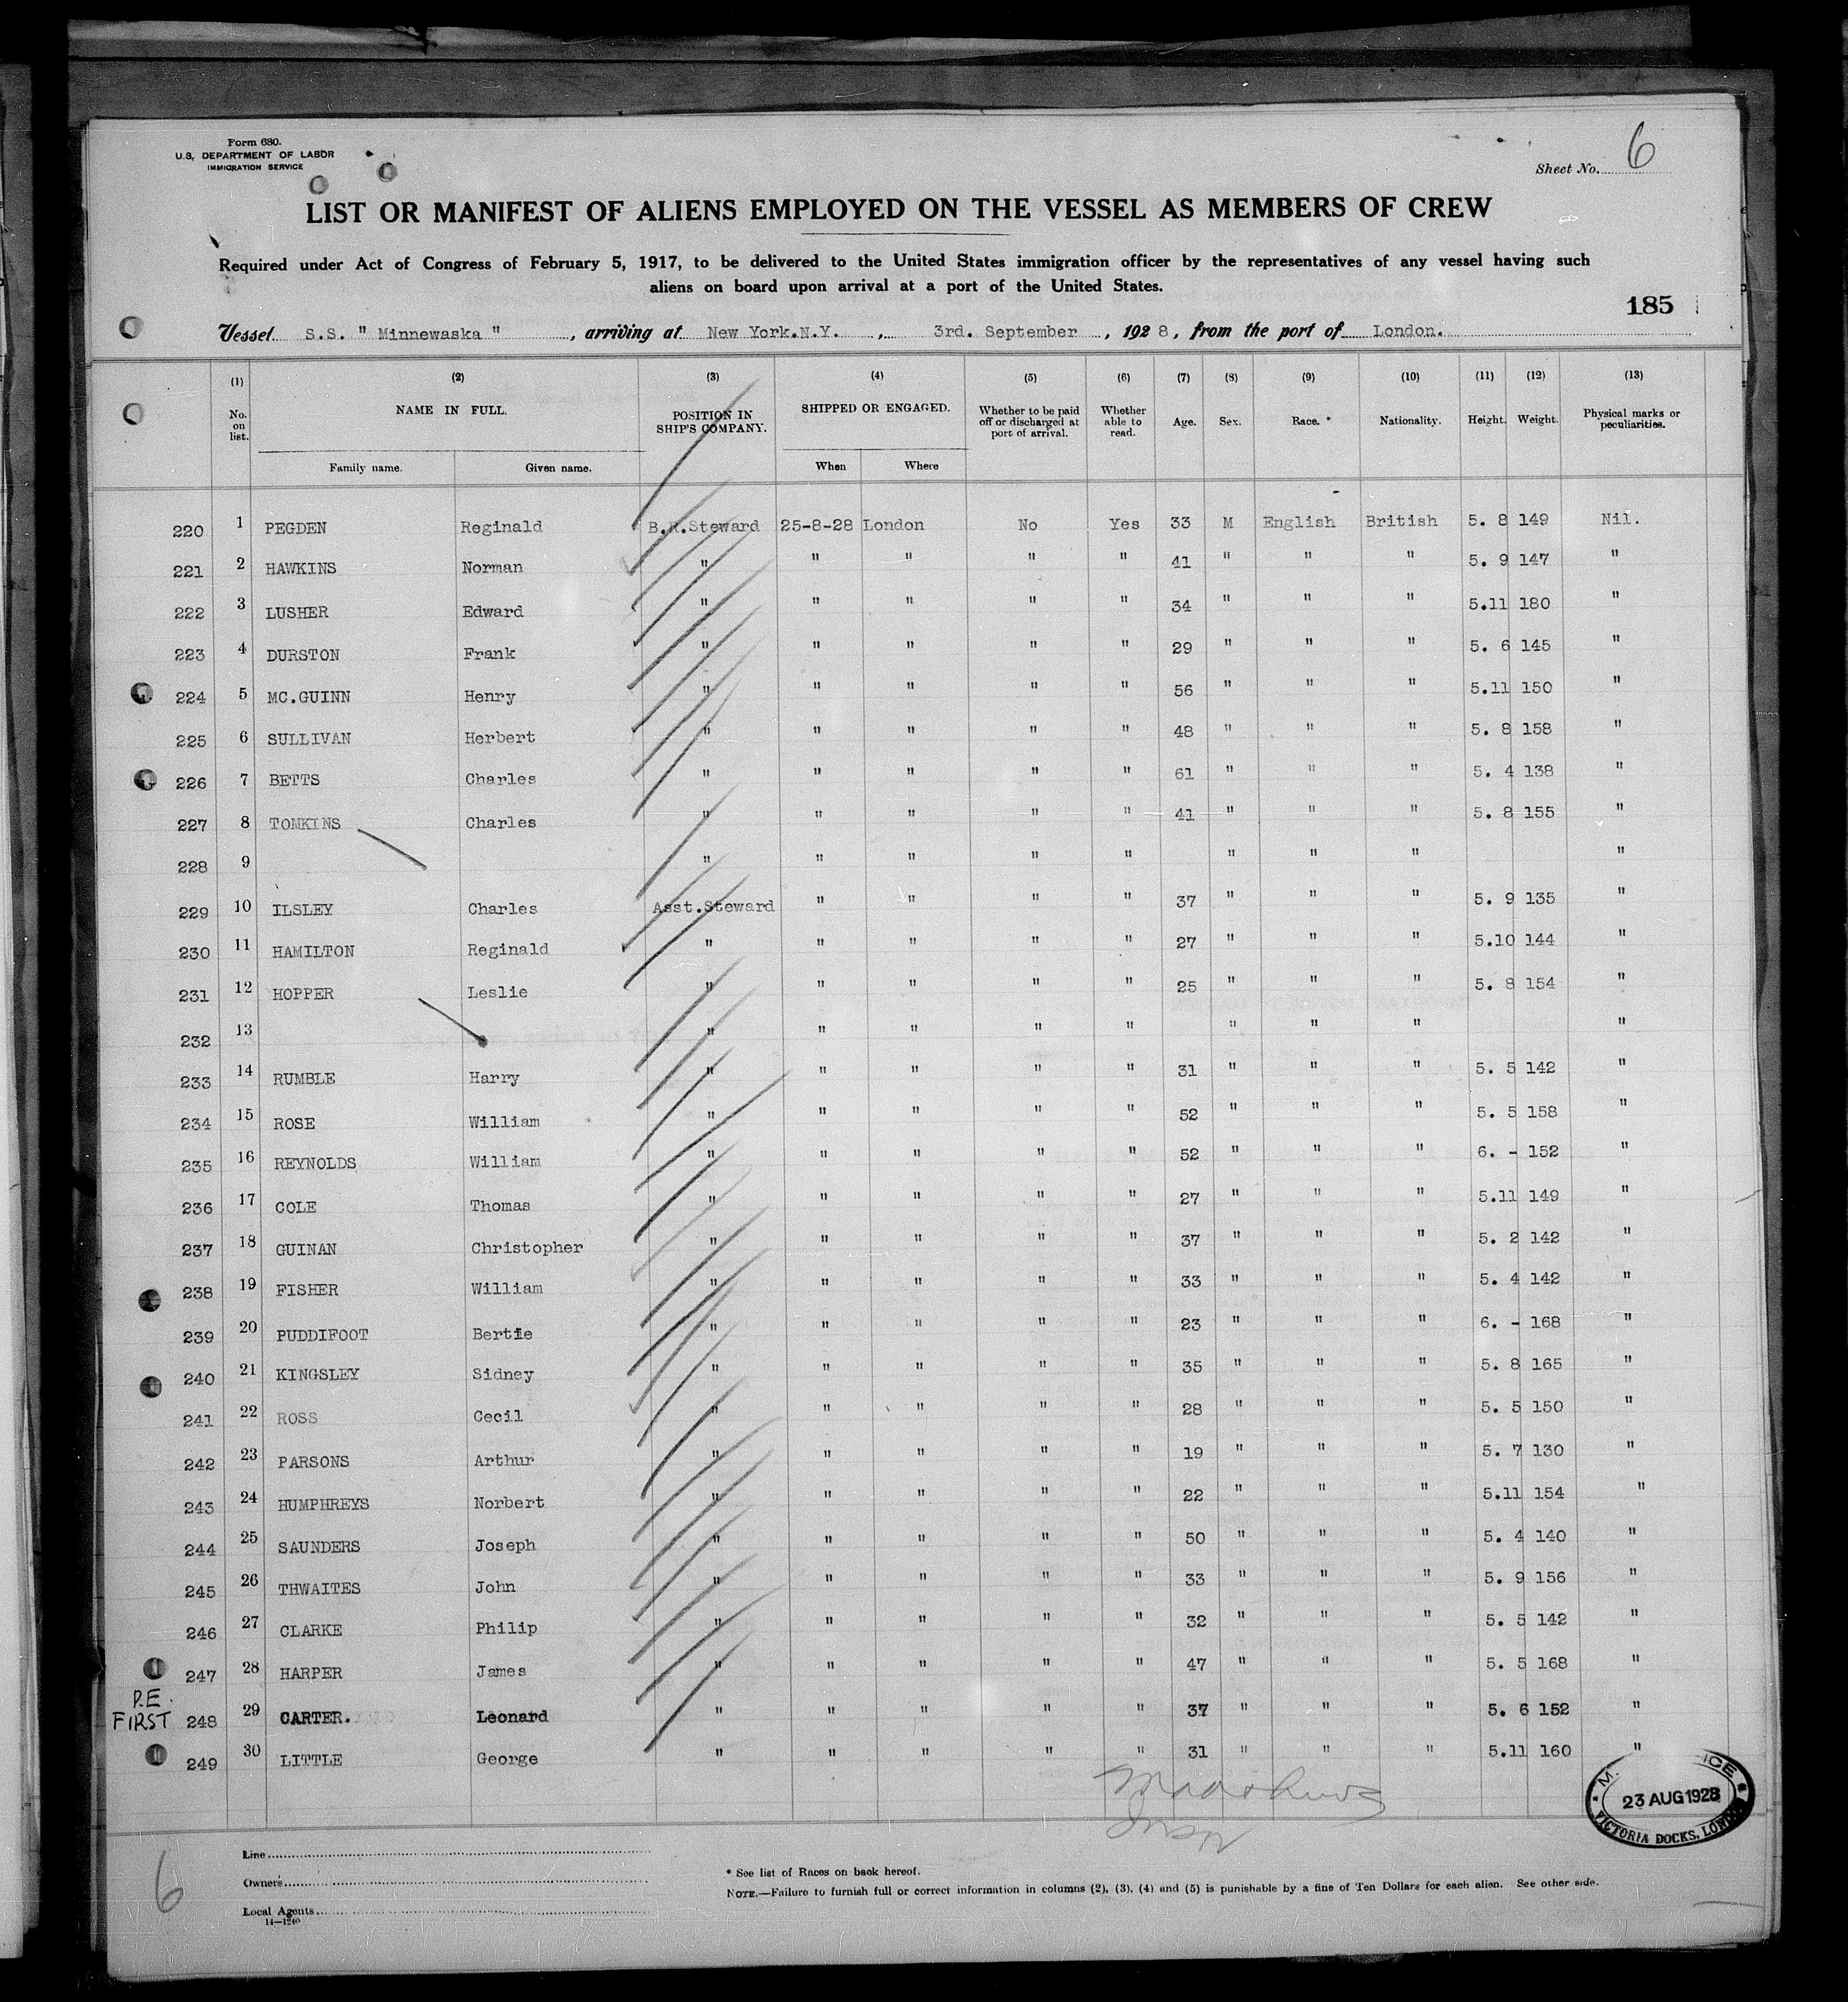 Form 680.
U.S. DEPARTMENT OF LABOR
IMMIGRATION SERVICE
Sheet No. 6
LIST OR MANIFEST OF ALIENS EMPLOYED ON THE VESSEL AS MEMBERS OF CREW
Required under Act of Congress of February 5, 1917, to be delivered to the United States immigration officer by the representatives of any vessel having such
aliens on board upon arrival at a port of the United States.
185
Vessel S.S. " Minnewaska " , arriving at New York.N.Y. , 3rd. September , 1928, from the port of London.
(1) (2) (3) (4) (5) (6) (7) (8) (9) (10) (11) (12) (13)
No. on list. NAME IN FULL. POSITION IN SHIP'S COMPANY. SHIPPED OR ENGAGED. Whether to be paid off or discharged at port of arrival. Whether able to read. Age. Sex. Race. * Nationality. Height. Weight. Physical marks or peculiarities.
Family name. Given name. When Where
220 1 PEGDEN Reginald B.R.Steward 25-8-28 London No Yes 33 M English British 5. 8 149 Nil.
221 2 HAWKINS Norman " " " " " 41 " " " 5. 9 147 "
222 3 LUSHER Edward " " " " " 34 " " " 5.11 180 "
223 4 DURSTON Frank " " " " " 29 " " " 5. 6 145 "
224 5 MC.GUINN Henry " " " " " 56 " " " 5.11 150 "
225 6 SULLIVAN Herbert " " " " " 48 " " " 5. 8 158 "
226 7 BETTS Charles " " " " " 61 " " " 5. 4 138 "
227 8 TOMKINS Charles " " " " " 41 " " " 5. 8 155 "
228 9 " " " " " " " " "
229 10 ILSLEY Charles Asst.Steward " " " " 37 " " " 5. 9 135 "
230 11 HAMILTON Reginald " " " " " 27 " " " 5.10 144 "
231 12 HOPPER Leslie " " " " " 25 " " " 5. 8 154 "
232 13 " " " " " " " " "
233 14 RUMBLE Harry " " " " " 31 " " " 5. 5 142 "
234 15 ROSE William " " " " " 52 " " " 5. 5 158 "
235 16 REYNOLDS William " " " " " 52 " " " 6. - 152 "
236 17 COLE Thomas " " " " " 27 " " " 5.11 149 "
237 18 GUINAN Christopher " " " " " 37 " " " 5. 2 142 "
238 19 FISHER William " " " " " 33 " " " 5. 4 142 "
239 20 PUDDIFOOT Bertie " " " " " 23 " " " 6. - 168 "
240 21 KINGSLEY Sidney " " " " " 35 " " " 5. 8 165 "
241 22 ROSS Cecil " " " " " 28 " " " 5. 5 150 "
242 23 PARSONS Arthur " " " " " 19 " " " 5. 7 130 "
243 24 HUMPHREYS Norbert " " " " " 22 " " " 5.11 154 "
244 25 SAUNDERS Joseph " " " " " 50 " " " 5. 4 140 "
245 26 THWAITES John " " " " " 33 " " " 5. 9 156 "
246 27 CLARKE Philip " " " " " 32 " " " 5. 5 142 "
247 28 HARPER James " " " " " 47 " " " 5. 5 168 "
P.E.
FIRST 248 29 CARTER. Leonard " " " " " 37 " " " 5. 6 152 "
249 30 LITTLE George " " " " " 31 " " " 5.11 160 "
23 AUG 1928
VICTORIA DOCKS, LONDON
6
Line
Owners
Local Agents
14—1240
* See list of Races on back hereof.
NOTE.—Failure to furnish full or correct information in columns (2), (3), (4) and (5) is punishable by a fine of Ten Dollars for each alien. See other side.